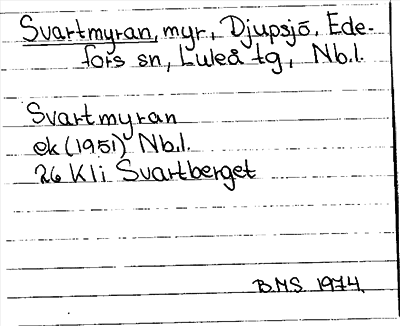 Svartmyran, myr, Djupsjö, Ede-
fors sn, Luleå tg, Nb.l.
Svartmyran
ek (1951) Nb.l.
26 Kli Svartberget
B.M.S. 1974.